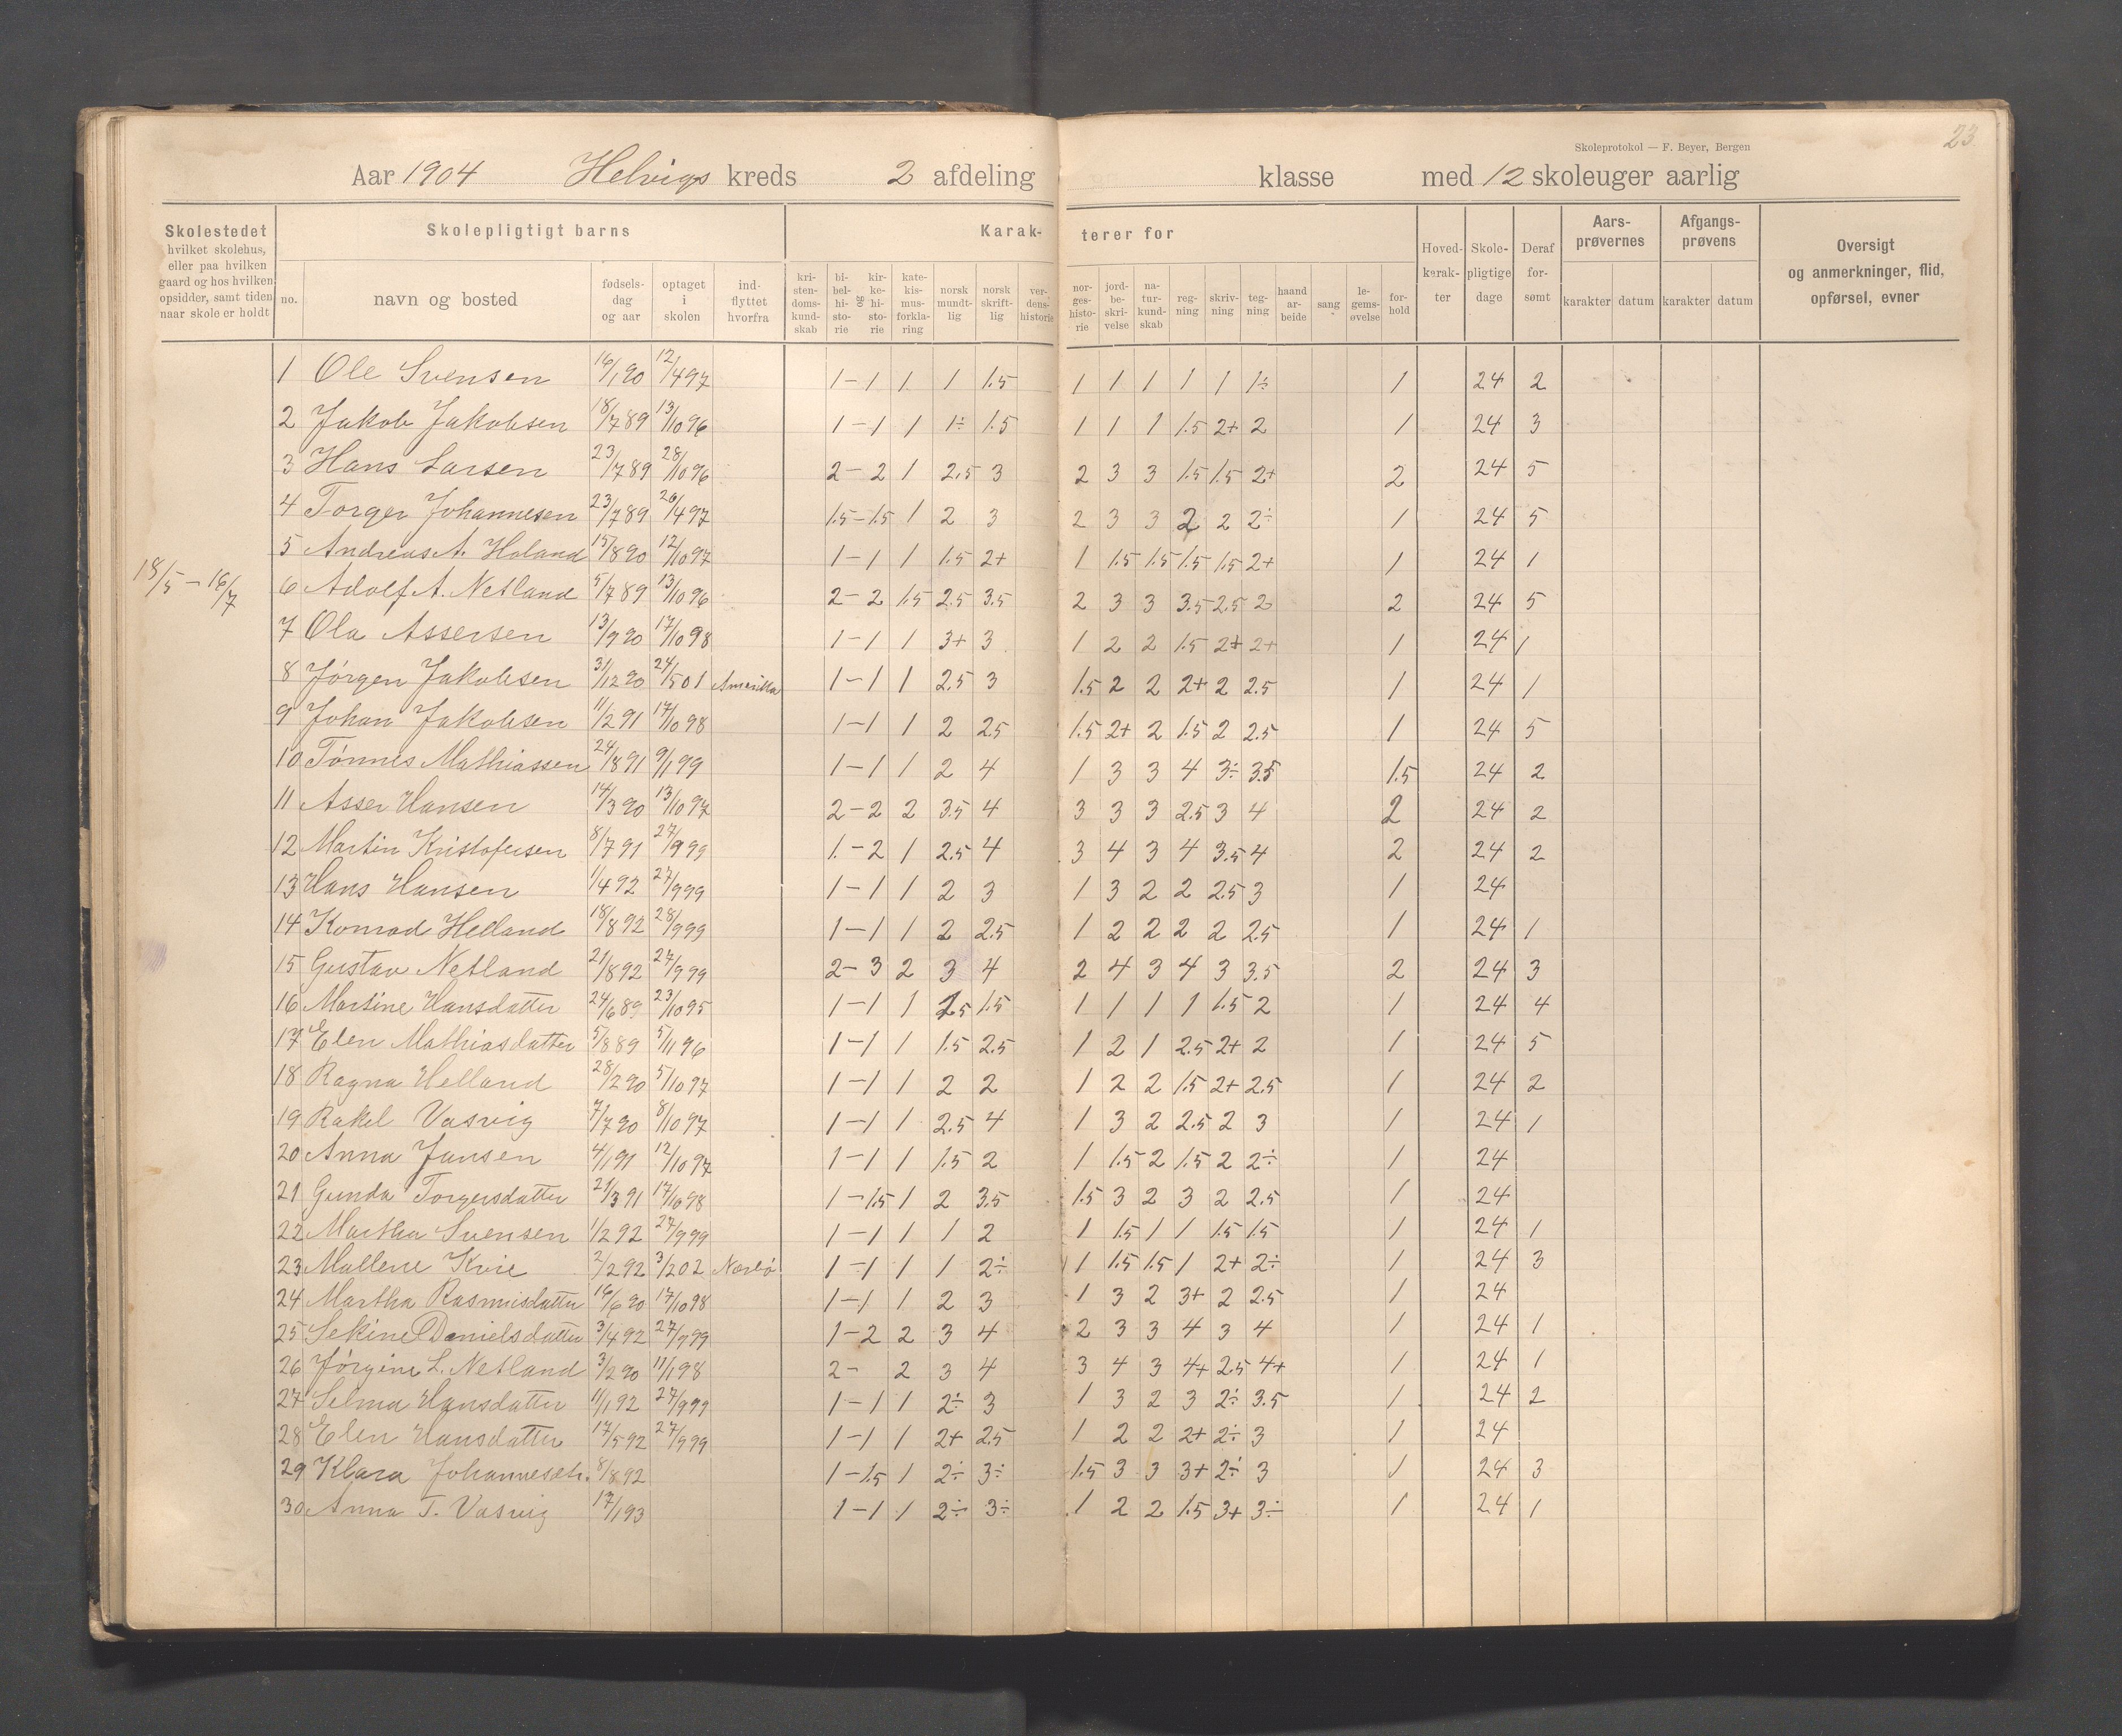 23
Skoleprotokol — F. Beyer, Bergen
Aar 1904 Helvigs kreds 2 afdeling klasse med 12 skoleuger aarlig
Skolestedet hvilket skolehus, eller paa hvilken gaard og hos hvilken opsidder, samt tiden naar skole er holdt
Skolepligtigt barns
no. navn og bosted fødsels-dag og aar optaget i skolen ind-flyttet hvorfra
Karak- terer for
kri-sten-doms-kund-skab bi-bel-hi-sto-rie og kir-ke-hi-sto-rie kate-kis-mus-forkla-ring norsk mundt-lig norsk skrift-lig ver-dens-historie nor-ges-histo-rie jord-be-skri-velse na-tur-kund-skab reg-ning skriv-ning teg-ning haand ar-beide sang le-gems-øvelse for-hold
Hoved-karak-ter Skole-pligtige dage Deraf for-sømt
Aars-prøvernes karakter datum Afgangs-prøvens karakter datum
Oversigt og anmerkninger, flid, opførsel, evner
18/5 — 16/7
1 Ole Svensen 16/1 90 12/4 97 1 – 1 1 1 1.5 1 1 1 1 1 1÷ 1 24 2
2 Jakob Jakobsen 18/7 89 13/10 96 1 – 1 1 1÷ 1.5 1 1 1 1.5 2+ 2 1 24 3
3 Hans Larsen 23/7 89 28/10 96 2 – 2 1 2.5 3 2 3 3 1.5 1.5 2+ 2 24 5
4 Torger Johannesen 23/7 89 26/4 97 1.5 – 1.5 1 2 3 2 3 3 2 2 2÷ 1 24 5
5 Andreas A. Haland 15/8 90 12/10 97 1 – 1 1 1.5 2+ 1 1.5 1.5 1.5 1.5 2+ 1 24 1
6 Adolf A. Netland 5/7 89 13/10 96 2 – 2 1.5 2.5 3.5 2 3 3 3.5 2.5 2 2 24 5
7 Ola Assersen 13/9 90 17/10 98 1 – 1 1 3+ 3 1 2 2 1.5 2+ 2+ 1 24 1
8 Jørgen Jakobsen 31/12 90 24/5 01 Amerika 1 – 1 1 2.5 3 1.5 2 2 2+ 2 2.5 1 24 1
9 Johan Jakobsen 11/2 91 17/10 98 1 – 1 1 2 2.5 1.5 2+ 2 1.5 2 2.5 1 24 5
10 Tønnes Mathiassen 24/8 91 9/1 99 1 – 1 1 2 4 1 3 3 4 3÷ 3.5 1.5 24 2
11 Asser Hansen 14/3 90 13/10 97 2 – 2 2 3.5 4 3 3 3 2.5 3 4 2 24 2
12 Martin Kristofersen 8/7 91 27/9 99 1 – 2 1 2.5 4 3 4 3 4 3.5 4 2 24 2
13 Hans Hansen 1/4 92 27/9 99 1 – 1 1 2 3 1 3 2 2 2.5 3 1 24
14 Konrad Helland 18/8 92 28/9 99 1 – 1 1 2 2.5 1 2 2 2 2 2.5 1 24 1
15 Gustav Netland 21/8 92 27/9 99 2 – 3 2 3 4 2 4 3 4 3 3.5 2 24 3
16 Martine Hansdatter 24/6 89 23/10 95 1 – 1 1 1.5 1.5 1 1 1 1 1.5 2 1 24 4
17 Elen Mathiasdatter 5/8 89 5/11 96 1 – 1 1 1.5 2.5 1 2 1 2.5 2+ 2 1 24 5
18 Ragna Helland 28/2 90 5/10 97 1 – 1 1 2 2 1 2 2 1.5 2+ 2.5 1 24 2
19 Rakel Vasvig 7/7 90 8/10 97 1 – 1 1 2.5 4 1 3 2 2.5 2 3 1 24 1
20 Anna Jansen 4/1 91 12/10 97 1 – 1 1 1.5 2 1 1.5 2 1.5 2 2÷ 1 24
21 Gunda Torgersdatter 21/3 91 17/10 98 1 – 1.5 1 2 3.5 1.5 3 2 3 2 2.5 1 24
22 Martha Svensen 1/2 92 27/9 99 1 – 1 1 1 2 1 1.5 1 1 1.5 1.5 1 24 1
23 Mallene Kvie 2/2 92 3/2 02 Nærbø 1 – 1 1 1 2÷ 1 1.5 1.5 1 2+ 2÷ 1 24 3
24 Martha Rasmusdatter 16/6 90 17/10 98 1 – 1 1 2 3 1 3 2 3+ 2 2.5 1 24
25 Sekine Danielsdatter 3/4 92 27/9 99 1 – 2 2 3 4 2 3 3 4 3 4 1 24 1
26 Jørgine L. Netland 3/2 90 11/1 98 2 – 2 3 4 3 4 3 4+ 2.5 4+ 1 24 1
27 Selma Hansdatter 11/1 92 27/9 99 1 – 1 1 2÷ 3 1 3 2 3 2÷ 3.5 1 24 2
28 Elen Hansdatter 17/5 92 27/9 99 1 – 1 1 2+ 2.5 1 2 2 2+ 2÷ 3 1 24
29 Klara Johannesdtr. 8/8 92 1 – 1.5 1 2÷ 3÷ 1.5 3 3 3+ 2÷ 3 1 24 3
30 Anna T. Vasvig 17/1 93 1 – 1 1 2÷ 3÷ 1 2 2 1.5 3+ 3÷ 1 24 1